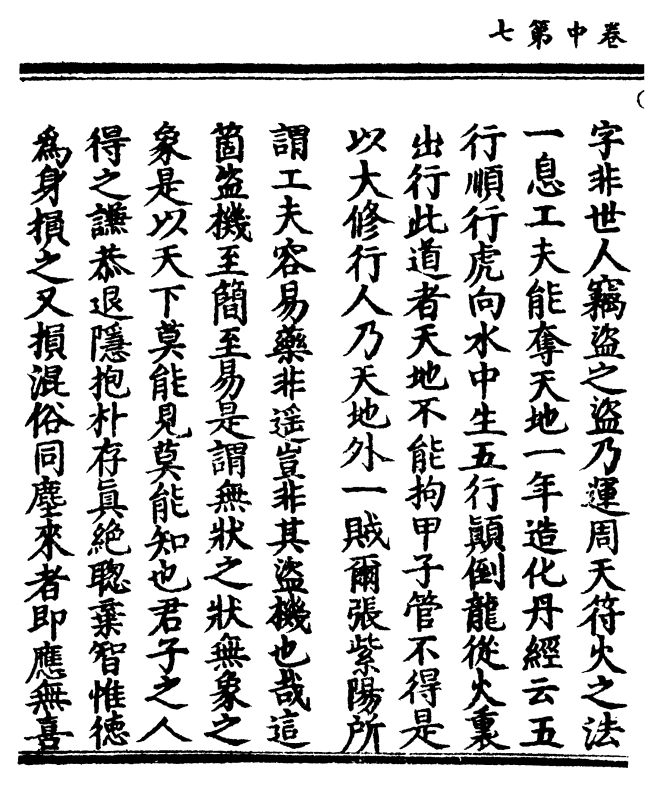 卷中第七
字非世人竊盜之盜乃運周天符火之法
一息工夫能奪天地一年造化丹經云五
行順行虎向水中生五行顛倒龍從火裏
出行此道者天地不能拘甲子管不得是
以大修行人乃天地外一賊爾張紫陽所
謂工夫容易藥非遥豈非其盜機也哉這
箇盜機至簡至易是謂無狀之狀無象之
象是以天下莫能見莫能知也君子之人
得之謙恭退隱抱朴存眞絶聦棄智惟德
為身損之又損混俗同塵來者即應無喜